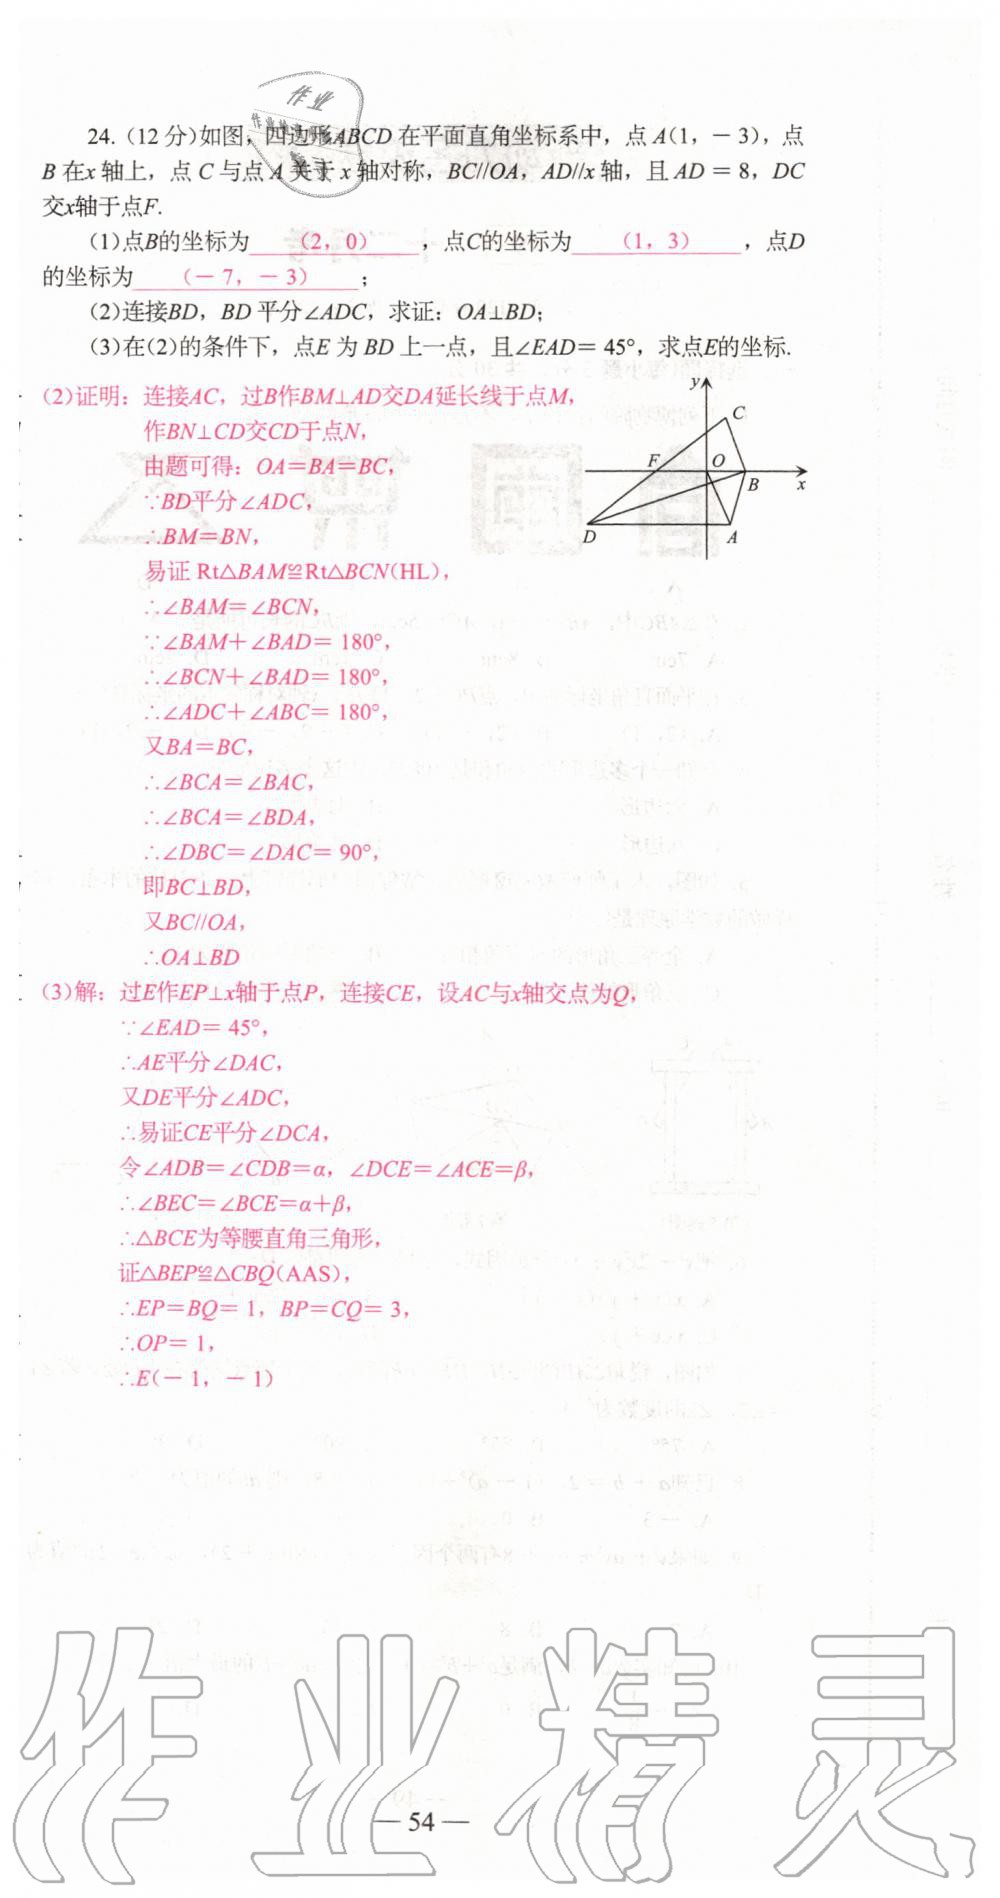 24. (12 分)如图，四边形ABCD 在平面直角坐标系中，点 A(1，－3)，点
B 在x 轴上，点 C 与点 A 关于 x 轴对称，BC//OA，AD//x 轴，且 AD ＝ 8，DC
交x轴于点F.
(1)点B的坐标为 (2，0) ，点C的坐标为 (1，3) ，点D
的坐标为 (－7，－3) ；
(2)连接BD，BD 平分∠ADC，求证：OA⊥BD；
(3)在(2)的条件下，点E 为 BD 上一点，且∠EAD＝ 45°，求点E的坐标.
(2)证明：连接AC，过B作BM⊥AD交DA延长线于点M，
作BN⊥CD交CD于点N，
由题可得：OA＝BA＝BC，
∵BD平分∠ADC，
∴BM＝BN，
易证 Rt△BAM≌Rt△BCN(HL)，
∴∠BAM＝∠BCN，
∵∠BAM＋∠BAD＝ 180°，
∴∠BCN＋∠BAD＝ 180°，
∴∠ADC＋∠ABC＝ 180°，
又BA＝BC，
∴∠BCA＝∠BAC，
∴∠BCA＝∠BDA，
∴∠DBC＝∠DAC＝ 90°，
即BC⊥BD，
又BC//OA，
∴OA⊥BD
y
C
F
O
B
x
D
A
(3)解：过E作EP⊥x轴于点P，连接CE，设AC与x轴交点为Q，
∵∠EAD＝ 45°，
∴AE平分∠DAC，
又DE平分∠ADC，
∴易证CE平分∠DCA，
令∠ADB＝∠CDB＝α，∠DCE＝∠ACE＝β，
∴∠BEC＝∠BCE＝α＋β，
∴△BCE为等腰直角三角形，
证△BEP≌△CBQ(AAS)，
∴EP＝BQ＝ 1，BP＝CQ＝ 3，
∴OP＝ 1，
∴E(－1，－1)
作业精灵
— 54 —